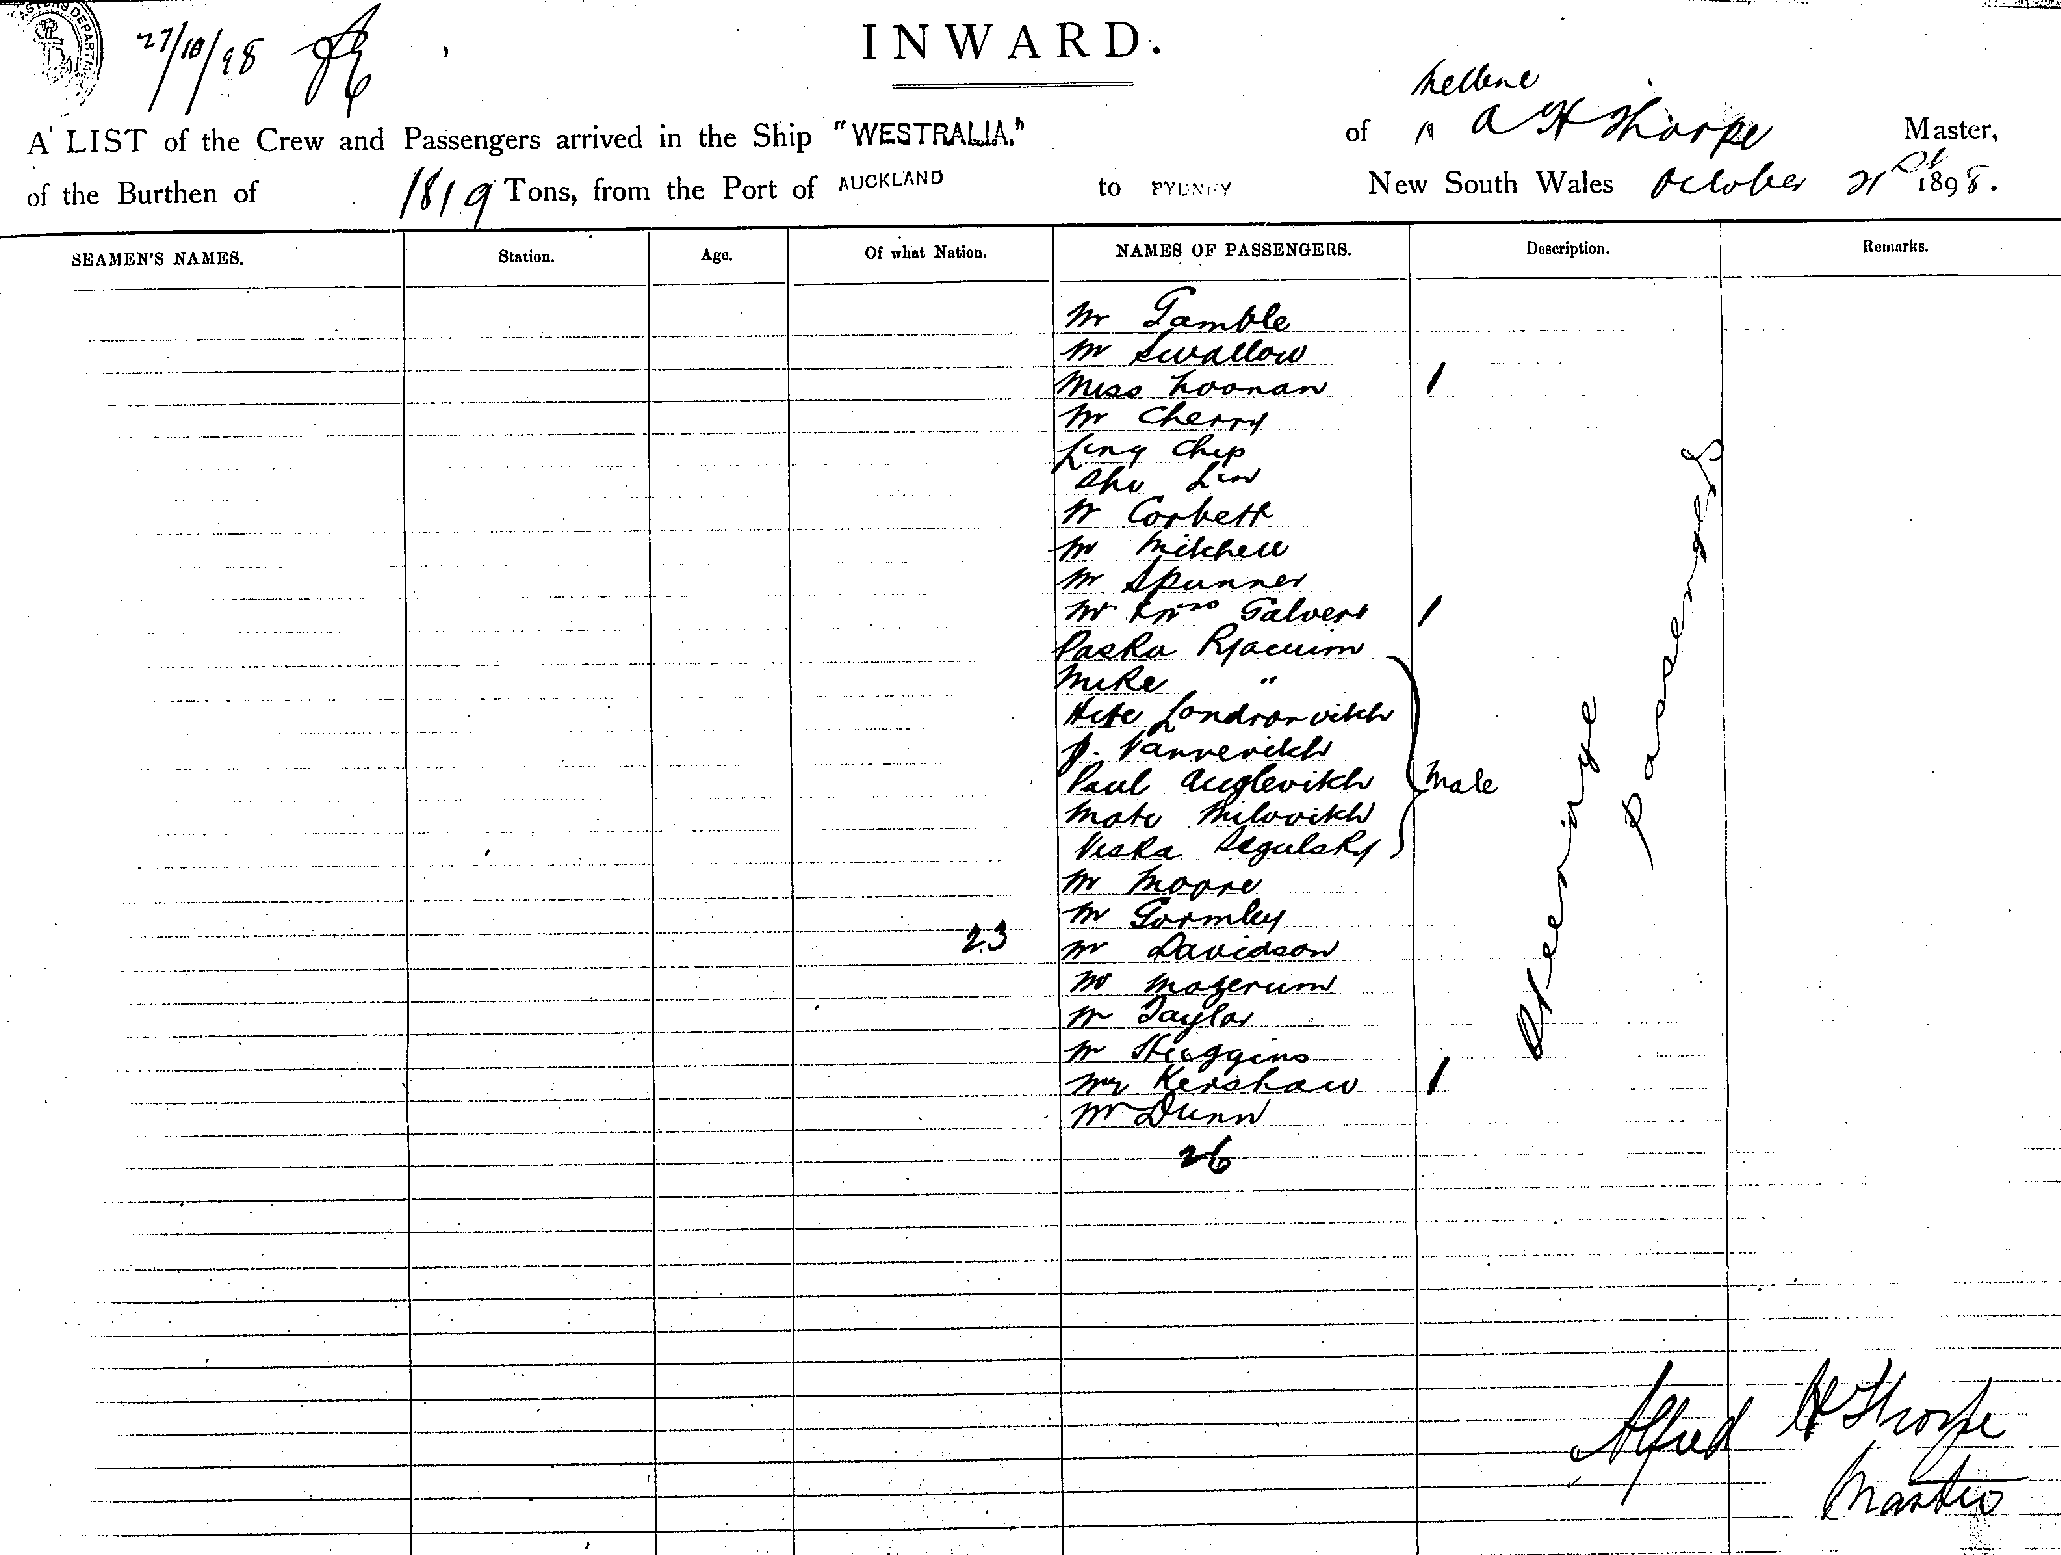 27/10/98
INWARD.
Melbne
A LIST of the Crew and Passengers arrived in the Ship "WESTRALIA." of A H Thorpe Master,
of the Burthen of 1819 Tons, from the Port of AUCKLAND to SYDNEY New South Wales October 21st 1898.
SEAMEN'S NAMES. Station. Age. Of what Nation. NAMES OF PASSENGERS. Description. Remarks.
Mr Gamble
Mr Swallow
Miss Noonan 1
Mr Cherry
Ling Chip
Aho Lin
Mr Corbett
Mr Mitchell
Mr Spunner
Mr & Mrs Galvert 1
Paska
Mike "
J.
Paul
Mate Milovitch
Male
Viska Segulsky
Mr Moore
Mr Gormley
23 Mr Davidson
Mr Mazerum
Mr Taylor
Mr Huggins
Mrs Kershaw 1
Mr Dunn
26
Steerage
Passengers
Alfred H Thorpe
Master